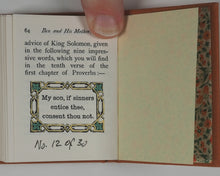 64 Ben and His Mother
advice of King Solomon, given
in the following nine impres-
sive words, which you will find
in the tenth verse of the
first chapter of Proverbs:—
My son, if sinners
entice thee,
consent thou not.
No. 12 of 30